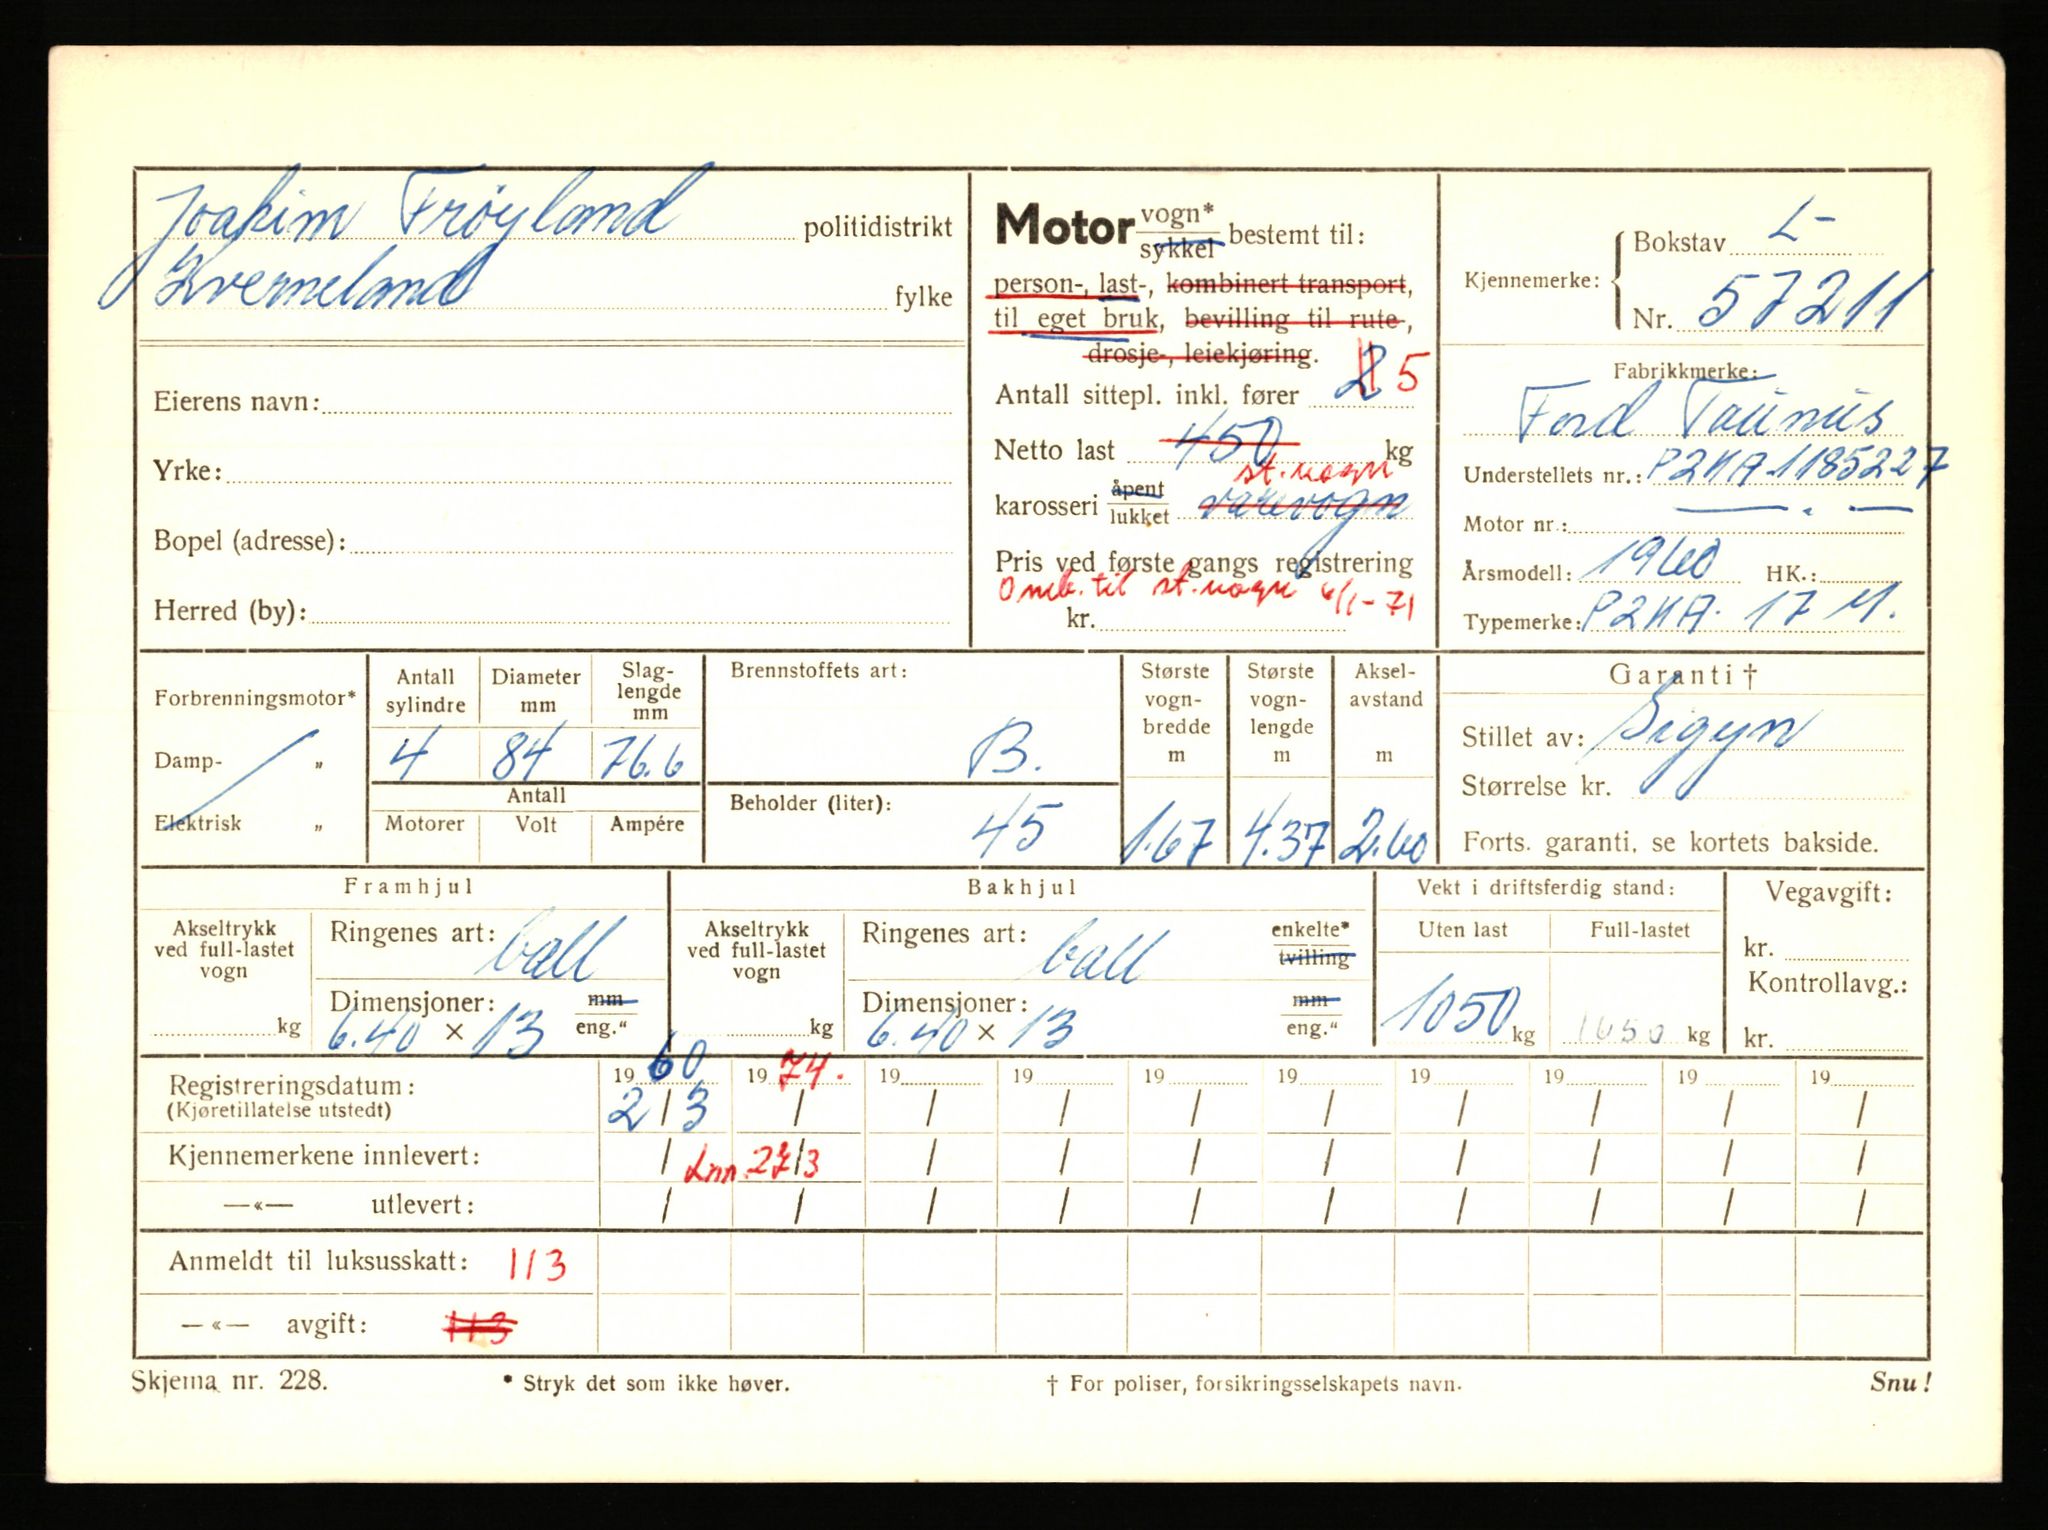 Joakim Frøyland politidistrikt
Kverneland fylke
Eierens navn:
Yrke:
Bopel (adresse):
Herred (by):
Motor vogn* / sykkel bestemt til:
person-, last-, kombinert transport,
til eget bruk, bevilling til rute-,
drosje-, leiekjøring.
Antall sittepl. inkl. fører 2 5
Netto last 450 kg
st.vogn
karosseri åpent / lukket varevogn
Pris ved første gangs registrering
Omb. til st.vogn 6/1-71
kr.
Kjennemerke: Bokstav L-
Nr. 57211
Fabrikkmerke:
Ford Taunus
Understellets nr.: P2NA 1185227
Motor nr.:
Årsmodell: 1960 HK.:
Typemerke: P2NA. 17 M.
Forbrenningsmotor*
Damp- „
Elektrisk „
Antall sylindre Diameter mm Slag-lengde mm
4 84 76.6
Antall
Motorer Volt Ampére
Brennstoffets art:
B.
Beholder (liter):
45
Største vogn-bredde m
1.67
Største vogn-lengde m
4.37
Aksel-avstand m
2.60
Garanti †
Stillet av: Sigyn
Størrelse kr.
Forts. garanti, se kortets bakside.
Framhjul
Akseltrykk ved full-lastet vogn
kg
Ringenes art: ball
Dimensjoner: mm
6.40 × 13 eng."
Bakhjul
Akseltrykk ved full-lastet vogn
kg
Ringenes art: ball enkelte* tvilling
Dimensjoner: mm
6.40 × 13 eng."
Vekt i driftsferdig stand:
Uten last Full-lastet
1050 kg 1650 kg
Vegavgift:
kr.
Kontrollavg.:
kr.
Registreringsdatum: 19 60 19 74. 19 19 19 19 19 19 19 19
(Kjøretillatelse utstedt) 2/3 / / / / / / / / /
Kjennemerkene innlevert: / Inn. 27/3 / / / / / / / /
—«— utlevert: / / / / / / / / / /
Anmeldt til luksusskatt: 113
—«— avgift: 113
Skjema nr. 228. * Stryk det som ikke høver. † For poliser, forsikringsselskapets navn. Snu!